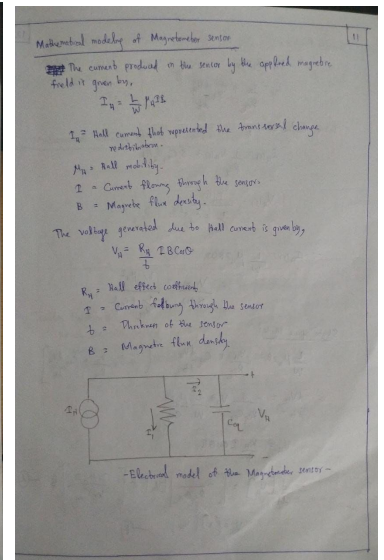 11
Mathematical modeling of Magnetometer sensor
The current produced in the sensor by the applied magnetic
field is given by,
I_H = L/W μ_H I B
I_H = Hall current that represented the transversal charge
redistribution.
μ_H = Hall mobility.
I = Current flowing through the sensor.
B = Magnetic flux density.
The voltage generated due to Hall current is given by,
V_H = R_H/t I B Cosθ
R_H = Hall effect coefficient
I = Current following through the sensor
t = Thickness of the sensor
B = Magnetic flux density
+
I_2
I_H
I_1
C_eq
V_H
-
- Electrical model of the Magnetometer sensor -